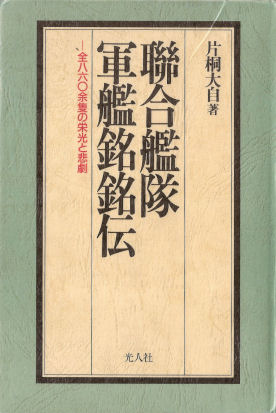 片桐大自著
聯合艦隊
軍艦銘銘伝
―全八六〇余隻の栄光と悲劇
光人社